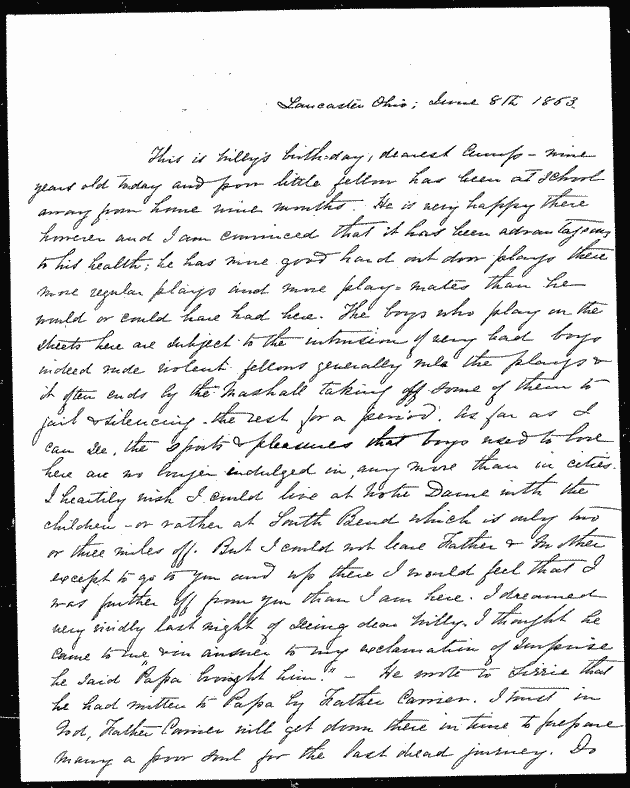 Lancaster Ohio; June 8th 1863
This is Willy's birth-day, dearest Cump - nine
years old today and poor little fellow has been at School
away from home nine months. He is very happy there
however and I am convinced that it has been advantageous
to his health; he has more good hard out door plays there
more regular plays and more play-mates than he
would or could have had here. The boys who play on the
streets here are subject to the intrusion of very bad boys
indeed rude violent fellows generally rule the plays &
it often ends by the Marshall taking off some of them to
jail & silencing the rest for a period. As far as I
can see, the sports & pleasures that boys used to love
here are no longer indulged in, any more than in cities.
I heartily wish I could live at Notre Dame with the
children - or rather at South Bend which is only two
or three miles off. But I could not leave Father & Mother
except to go to you and up there I would feel that I
was further off from you than I am here. I dreamed
very vividly last night of seeing dear Willy. I thought he
came to me & in answer to my exclamation of surprise
he said "Papa brought him." - He wrote to Lizzie that
he had written to Papa by Father Carrier. I trust in
God, Father Carrier will get down there in time to prepare
many a poor soul for the last dread journey. Do